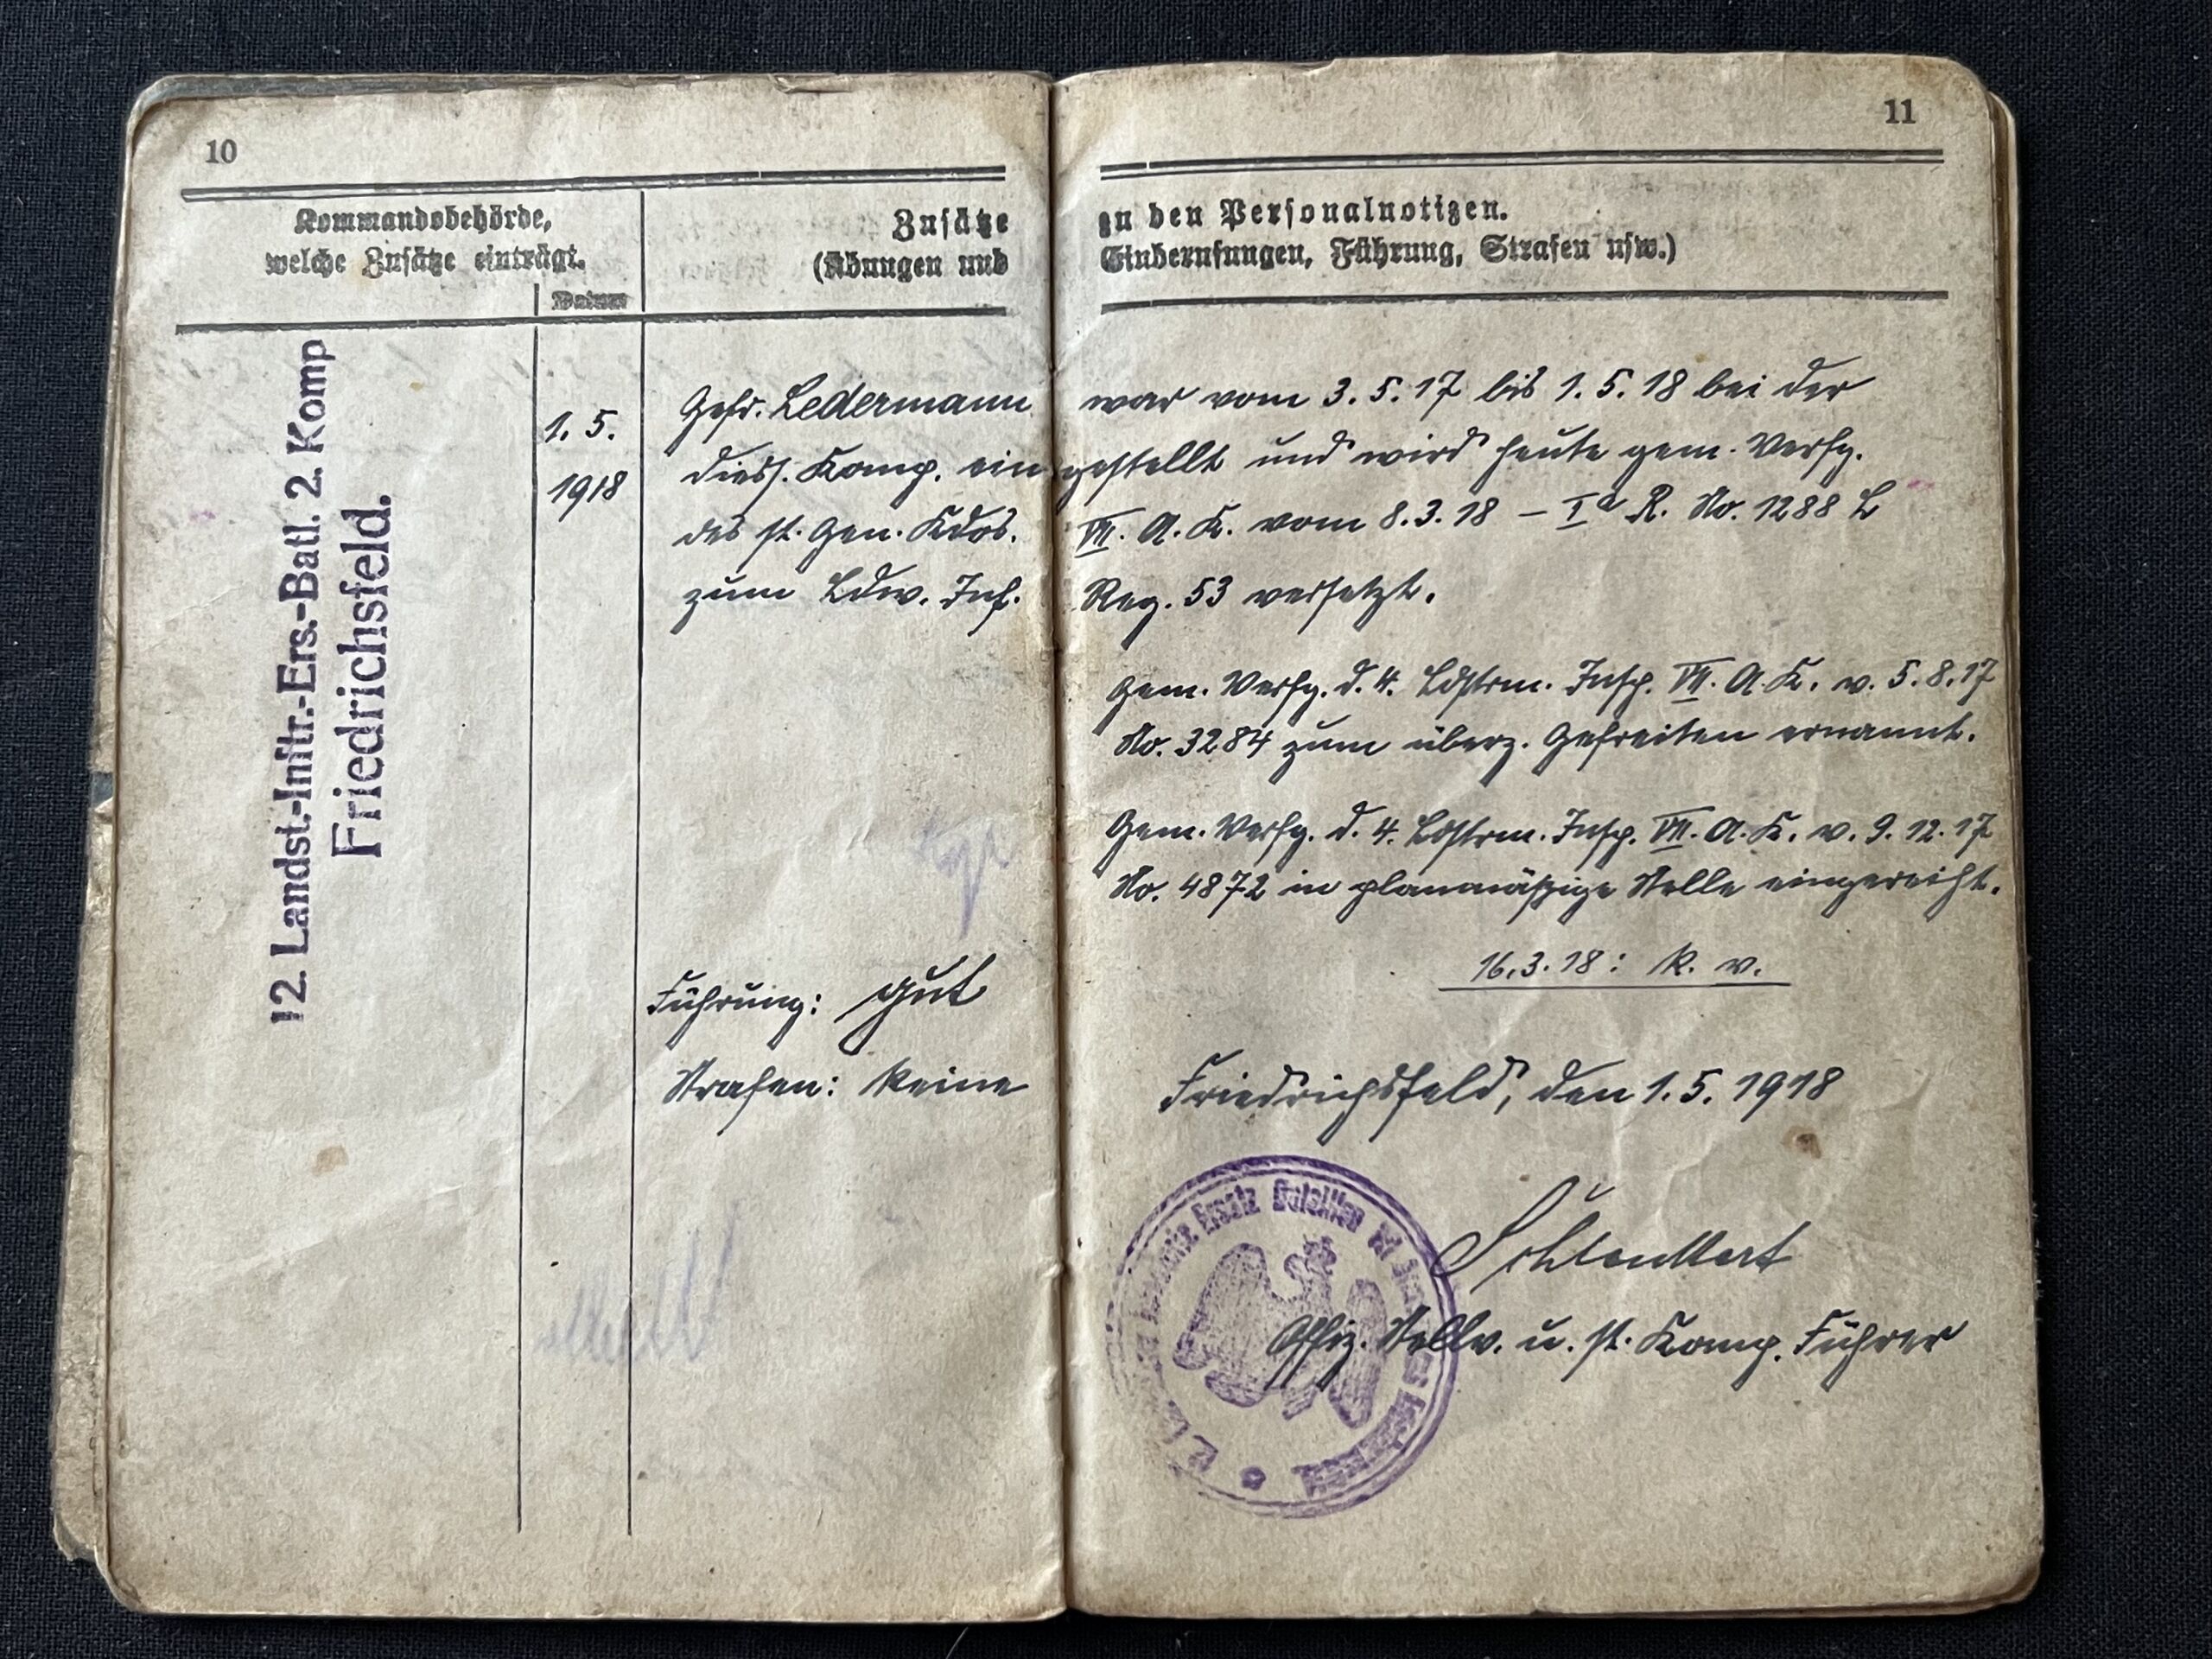 10
Kommandobehörde,
welche Zusätze einträgt.
Datum
Zusätze
(Übungen und
12. Landst.-Inftr.-Ers.-Batl. 2. Komp
Friedrichsfeld.
1. 5.
1918
Gefr. Ledermann
diess. Komp. ein
des st. Gen. Kdos.
zum Ldw. Inf.
Führung: gut
Strafen: keine
11
zu den Personalnotizen.
Einberufungen, Führung, Strafen usw.)
war vom 3. 5. 17 bis 1. 5. 18 bei der
gestellt und wird heute gem. Verfg.
VII. A. K. vom 8. 3. 18 – Ia R. No. 1288 L
Reg. 53 versetzt.
Gem. Verfg. d. 4. Ldstrm. Insp. VII. A. K. v. 5. 8. 17
No. 3284 zum überz. Gefreiten ernannt.
Gem. Verfg. d. 4. Ldstrm. Insp. VII. A. K. v. 9. 12. 17
No. 4872 in planmäßige Stelle eingereiht.
16. 3. 18: k. v.
Friedrichsfeld, den 1. 5. 1918
Offiz. Stellv. u. st. Komp. Führer
Ersatz Bataillon